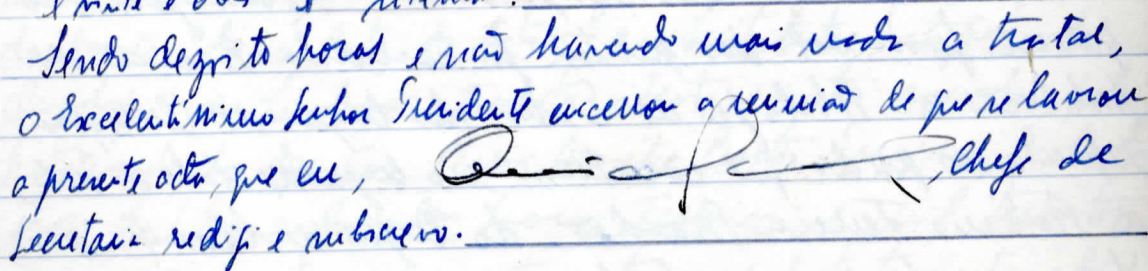 e vinte e dois e
Sendo dezoito horas e não havendo mais nada a tratar,
o Excelentíssimo Senhor Presidente encerrou a reunião de que se lavrou
a presente acta, que eu, , Chefe de
Secretaria redigi e subscrevo.